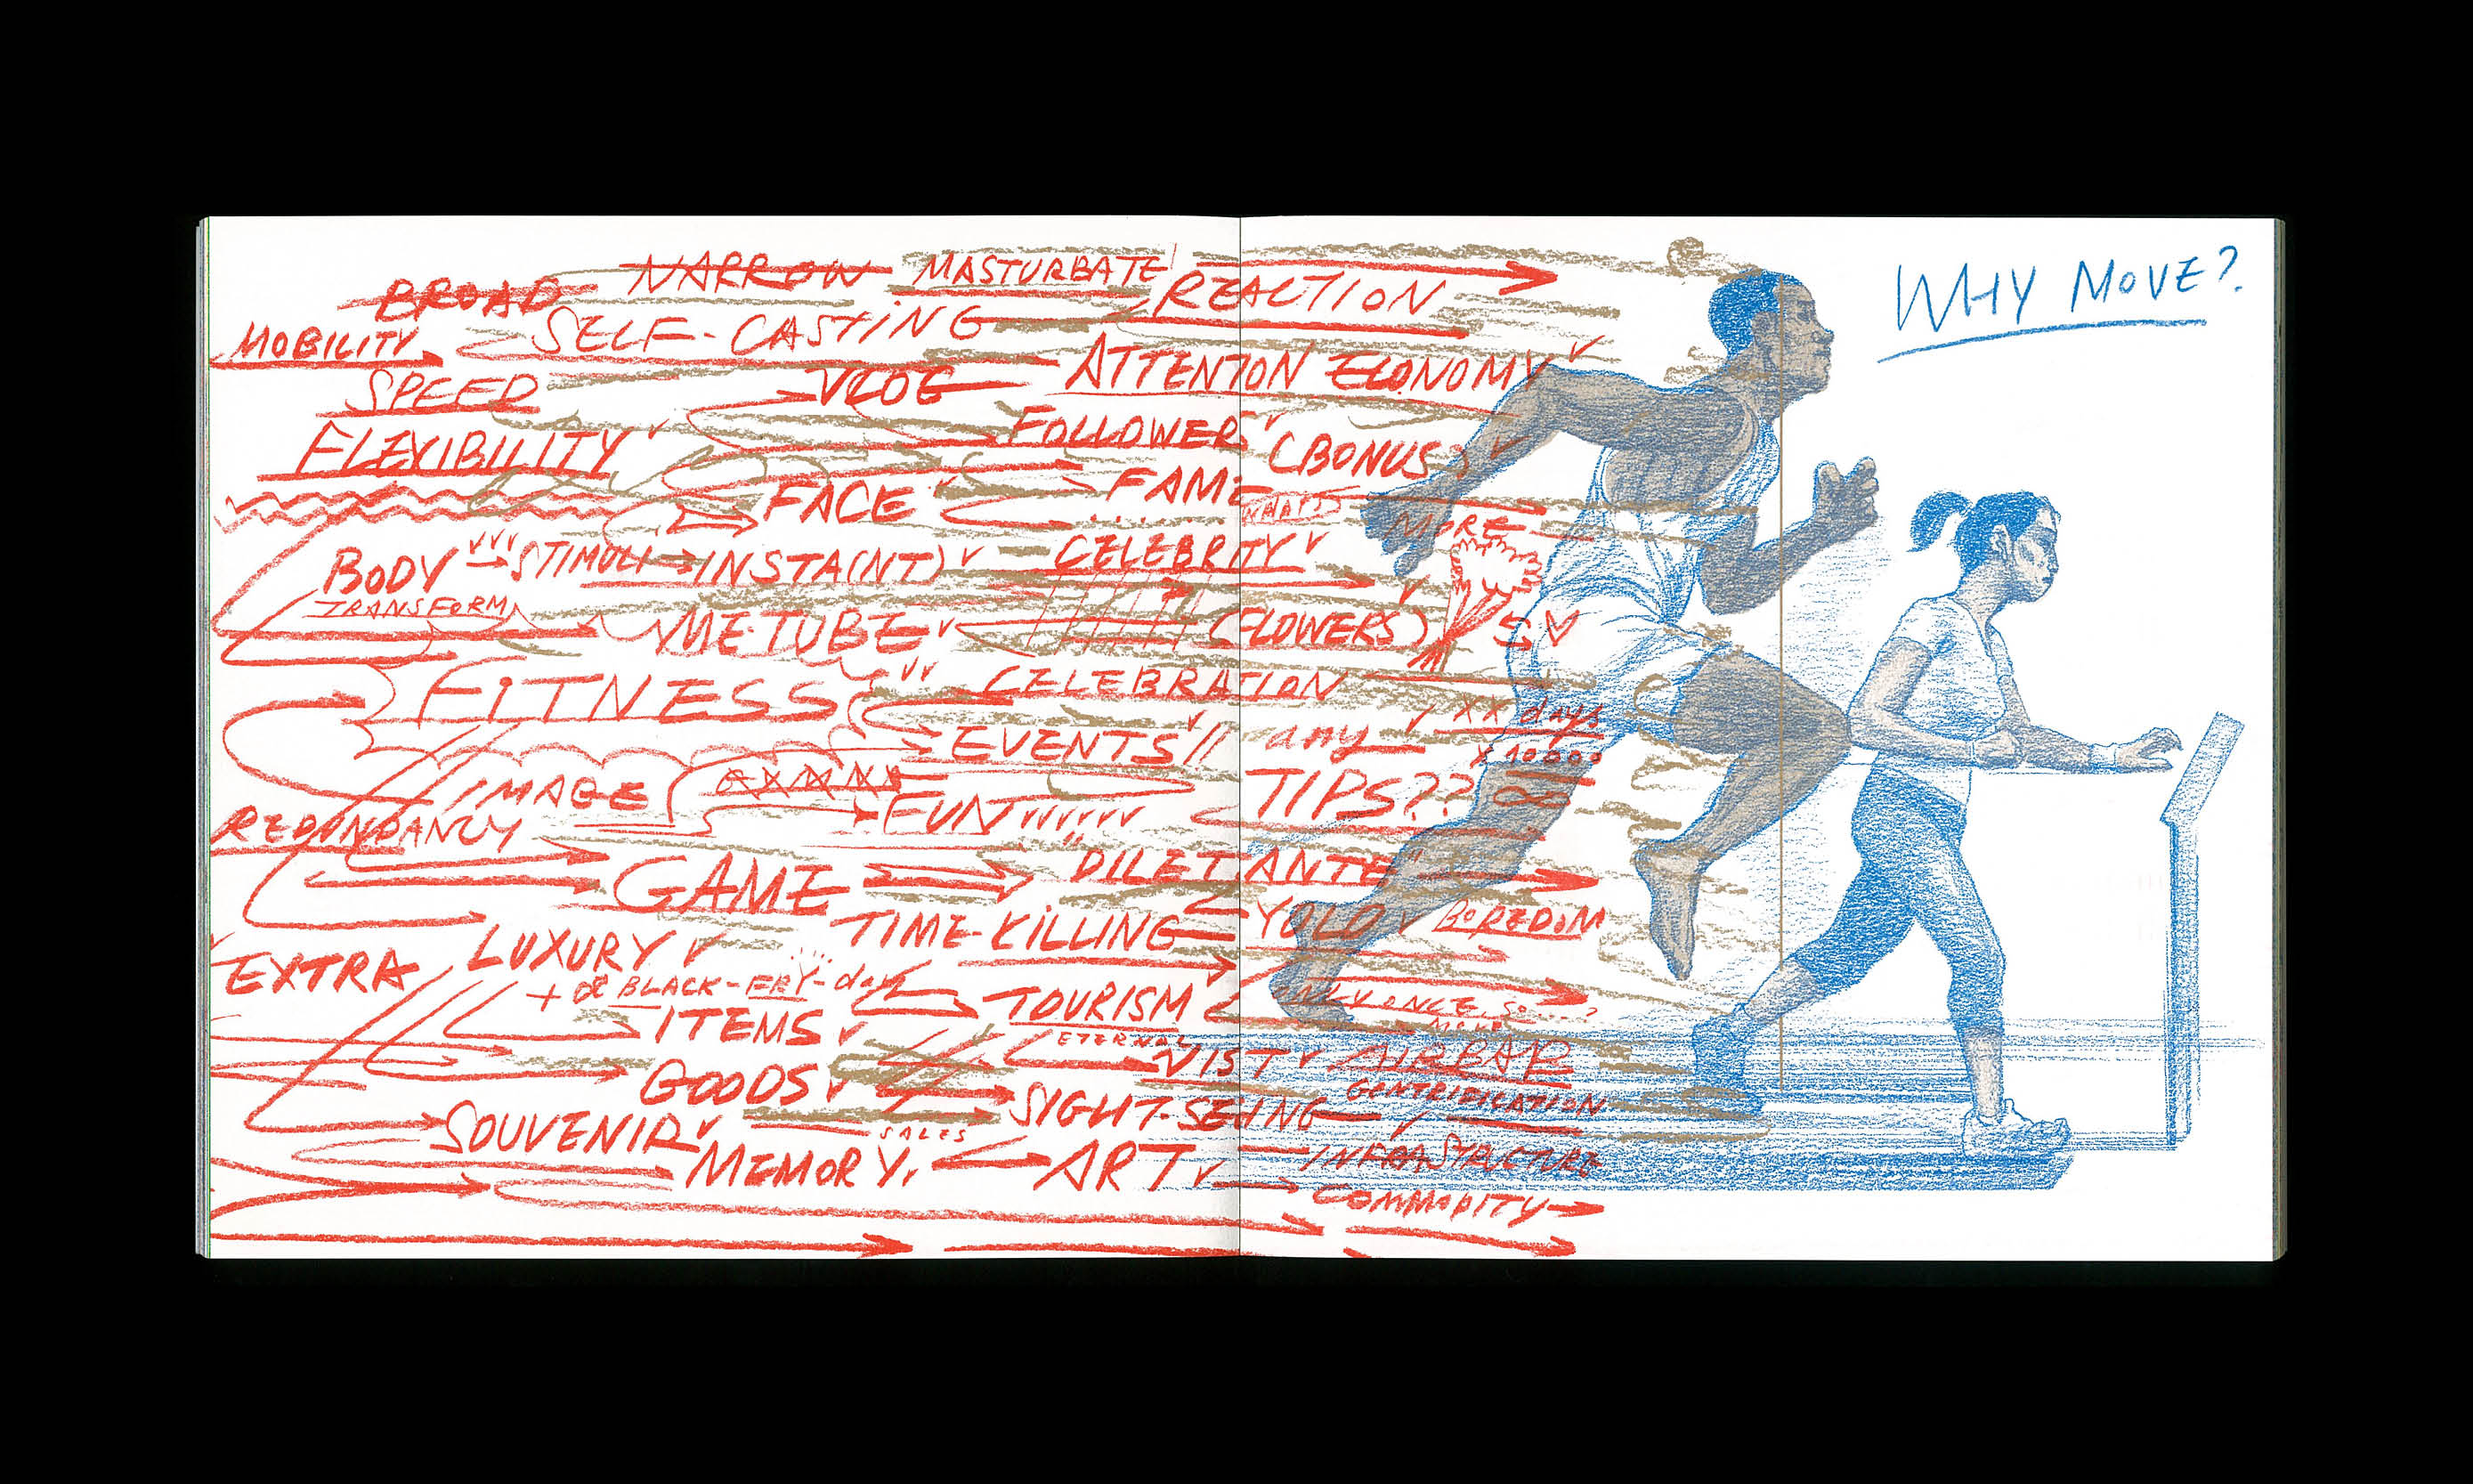 BROAD
NARROW
MASTURBATE
REACTION
WHY MOVE?
MOBILITY
SELF-CASTING
SPEED
VLOG
ATTENTION ECONOMY
FLEXIBILITY
FOLLOWERS
(BONUS)
FACE
FAME
(WHAT'S)
MORE
BODY
STIMULI
INSTA(NT)
CELEBRITY
TRANSFORM
METUBE
(FLOWERS)
FITNESS
CELEBRATION
EVENTS
any
xx days
x 10000
IMAGE
FUN
TIPS??
REDUNDANCY
GAME
"DILETTANTE"
TIME-KILLING
YOLO
BOREDOM
LUXURY
EXTRA
+ & BLACK-FRY-day
ITEMS
TOURISM
ONLY ONCE, SO....?
MOVE
ETERNAL
VISIT
AIRBNB
GOODS
GENTRIFICATION
SIGHT-SEING
SOUVENIR
SALES
MEMORY,
ART
INFRASTRUCTURE
COMMODITY